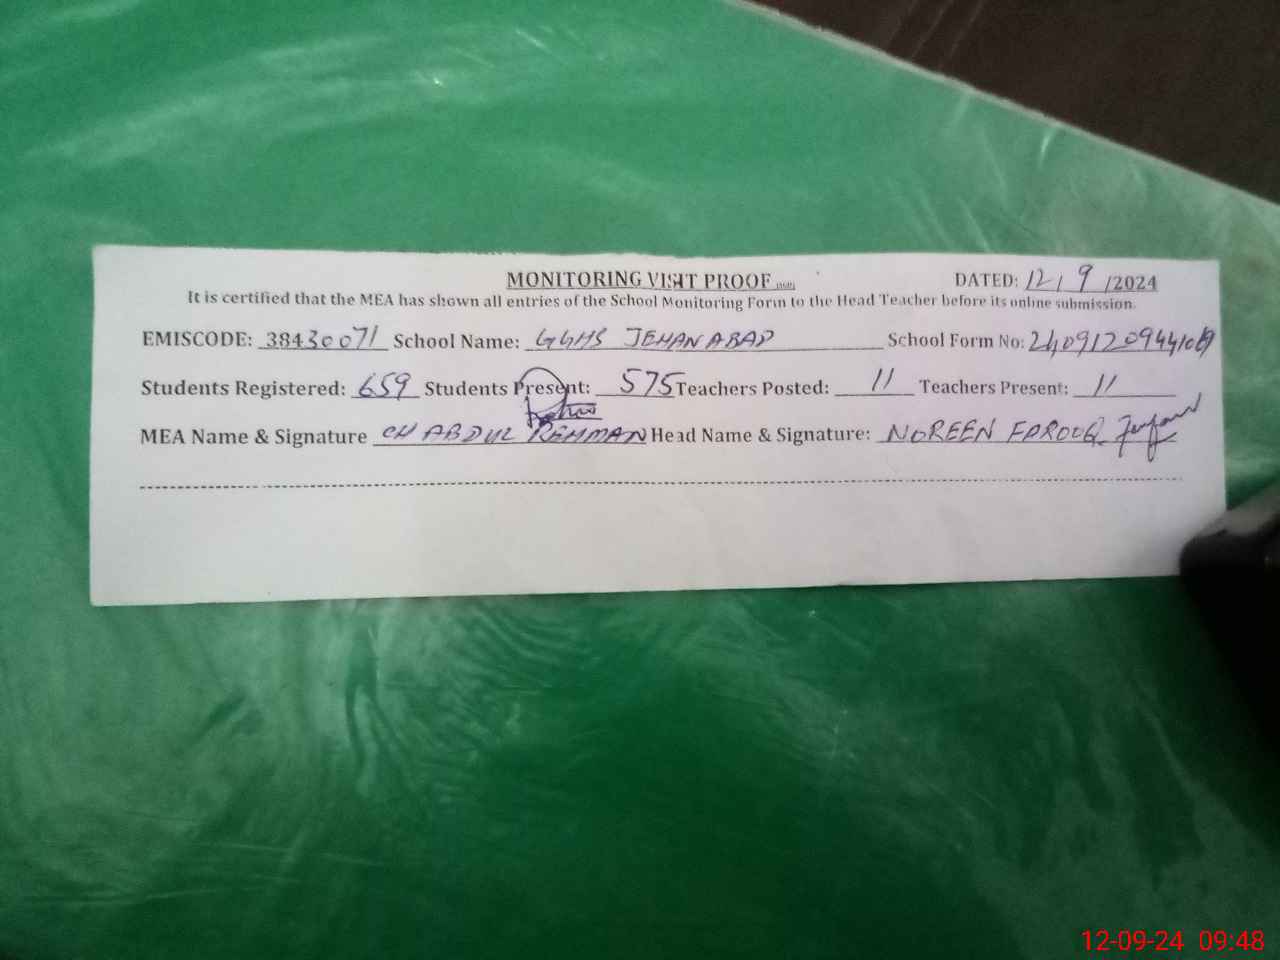 MONITORING VISIT PROOF
DATED: 12/9/2024
It is certified that the MEA has shown all entries of the School Monitoring Form to the Head Teacher before its online submission.
EMISCODE: 38430071 School Name: GGHS JEHANABAD School Form No:
Students Registered: 659 Students Present: 575 Teachers Posted: 11 Teachers Present: 11
MEA Name & Signature CH ABDUL REHMAN Head Name & Signature: NOREEN FAROOQ
12-09-24 09:48